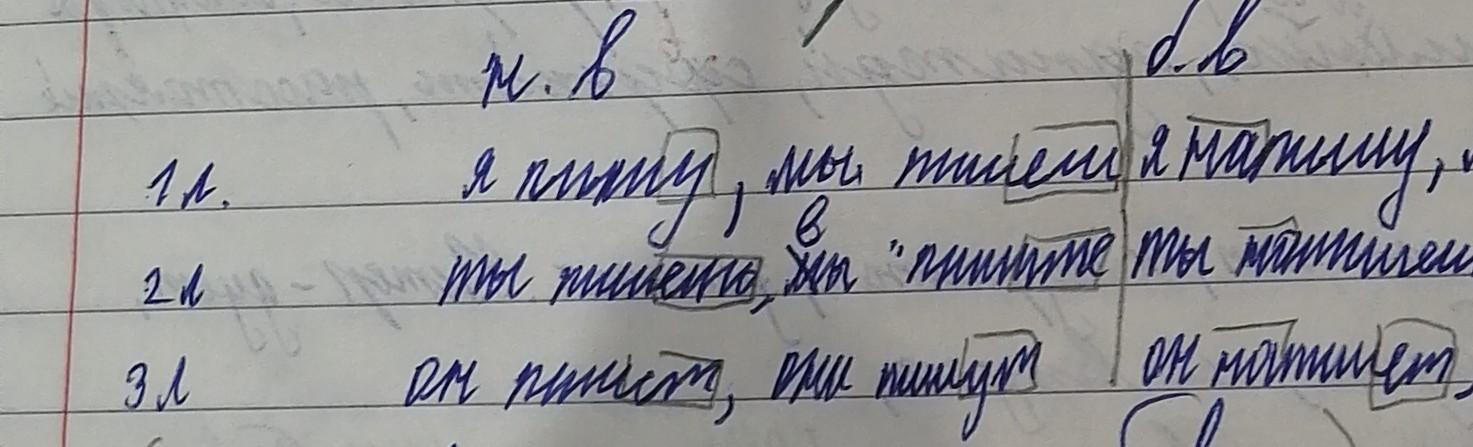 н.в б.в
1 л. я пишу, мы пишем я напишу,
2 л ты пишешь, вы пишите ты напишеш
3 л он пишет, они пишут он напишет,